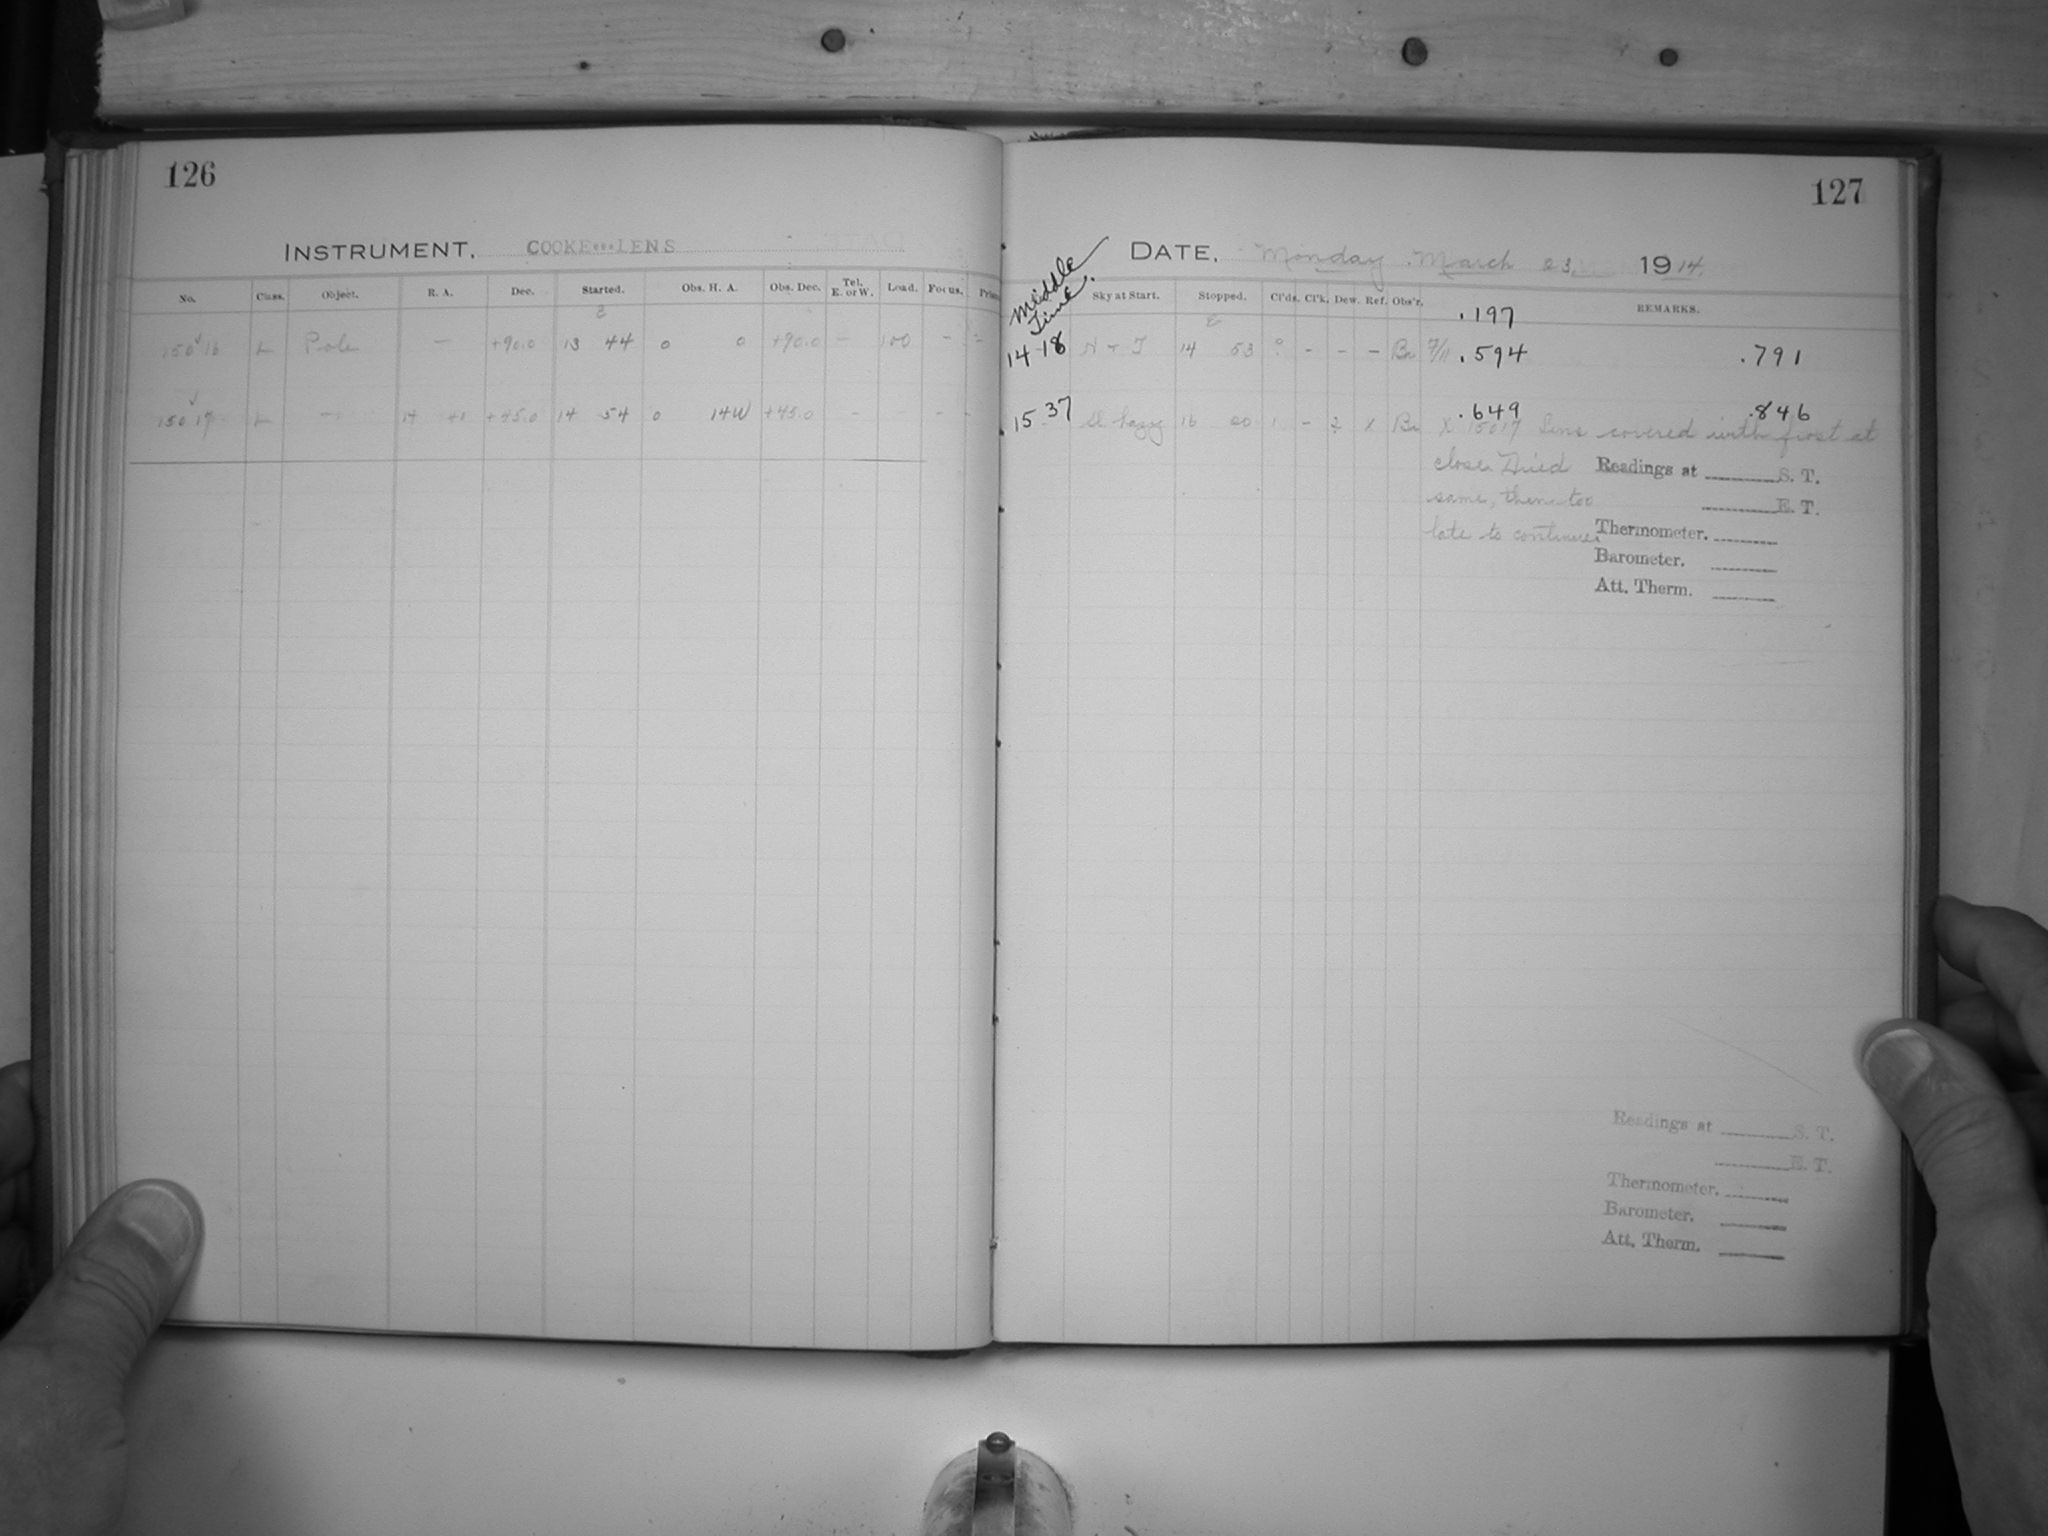 126
INSTRUMENT. COOKE LENS
No. Class. Object. R. A. Dec. Started. Obs. H. A. Obs. Dec. Tel. E. or W. Load. Focus.
15016 L Pole — +90.0 13 44 0 0 +90.0 — 100 -
15017 L — 14 40 +45.0 14 54 0 14W +45.0 - -
127
DATE. Monday March 23, 1914.
Middle Time.
Sky at Start. Stopped. Cl'ds. Cl'k. Dew. Ref. Obs'r. REMARKS.
.197
14-18 14 53 - - - .594 .791
15.37 Sl. hazy 16 00 1 - 2 X .649 .846
X 15017 Lens covered with frost at
close. Dried
same, then too
late to continue.
Readings at S. T.
E. T.
Thermometer.
Barometer.
Att. Therm.
Readings at S. T.
E. T.
Thermometer.
Barometer.
Att. Therm.